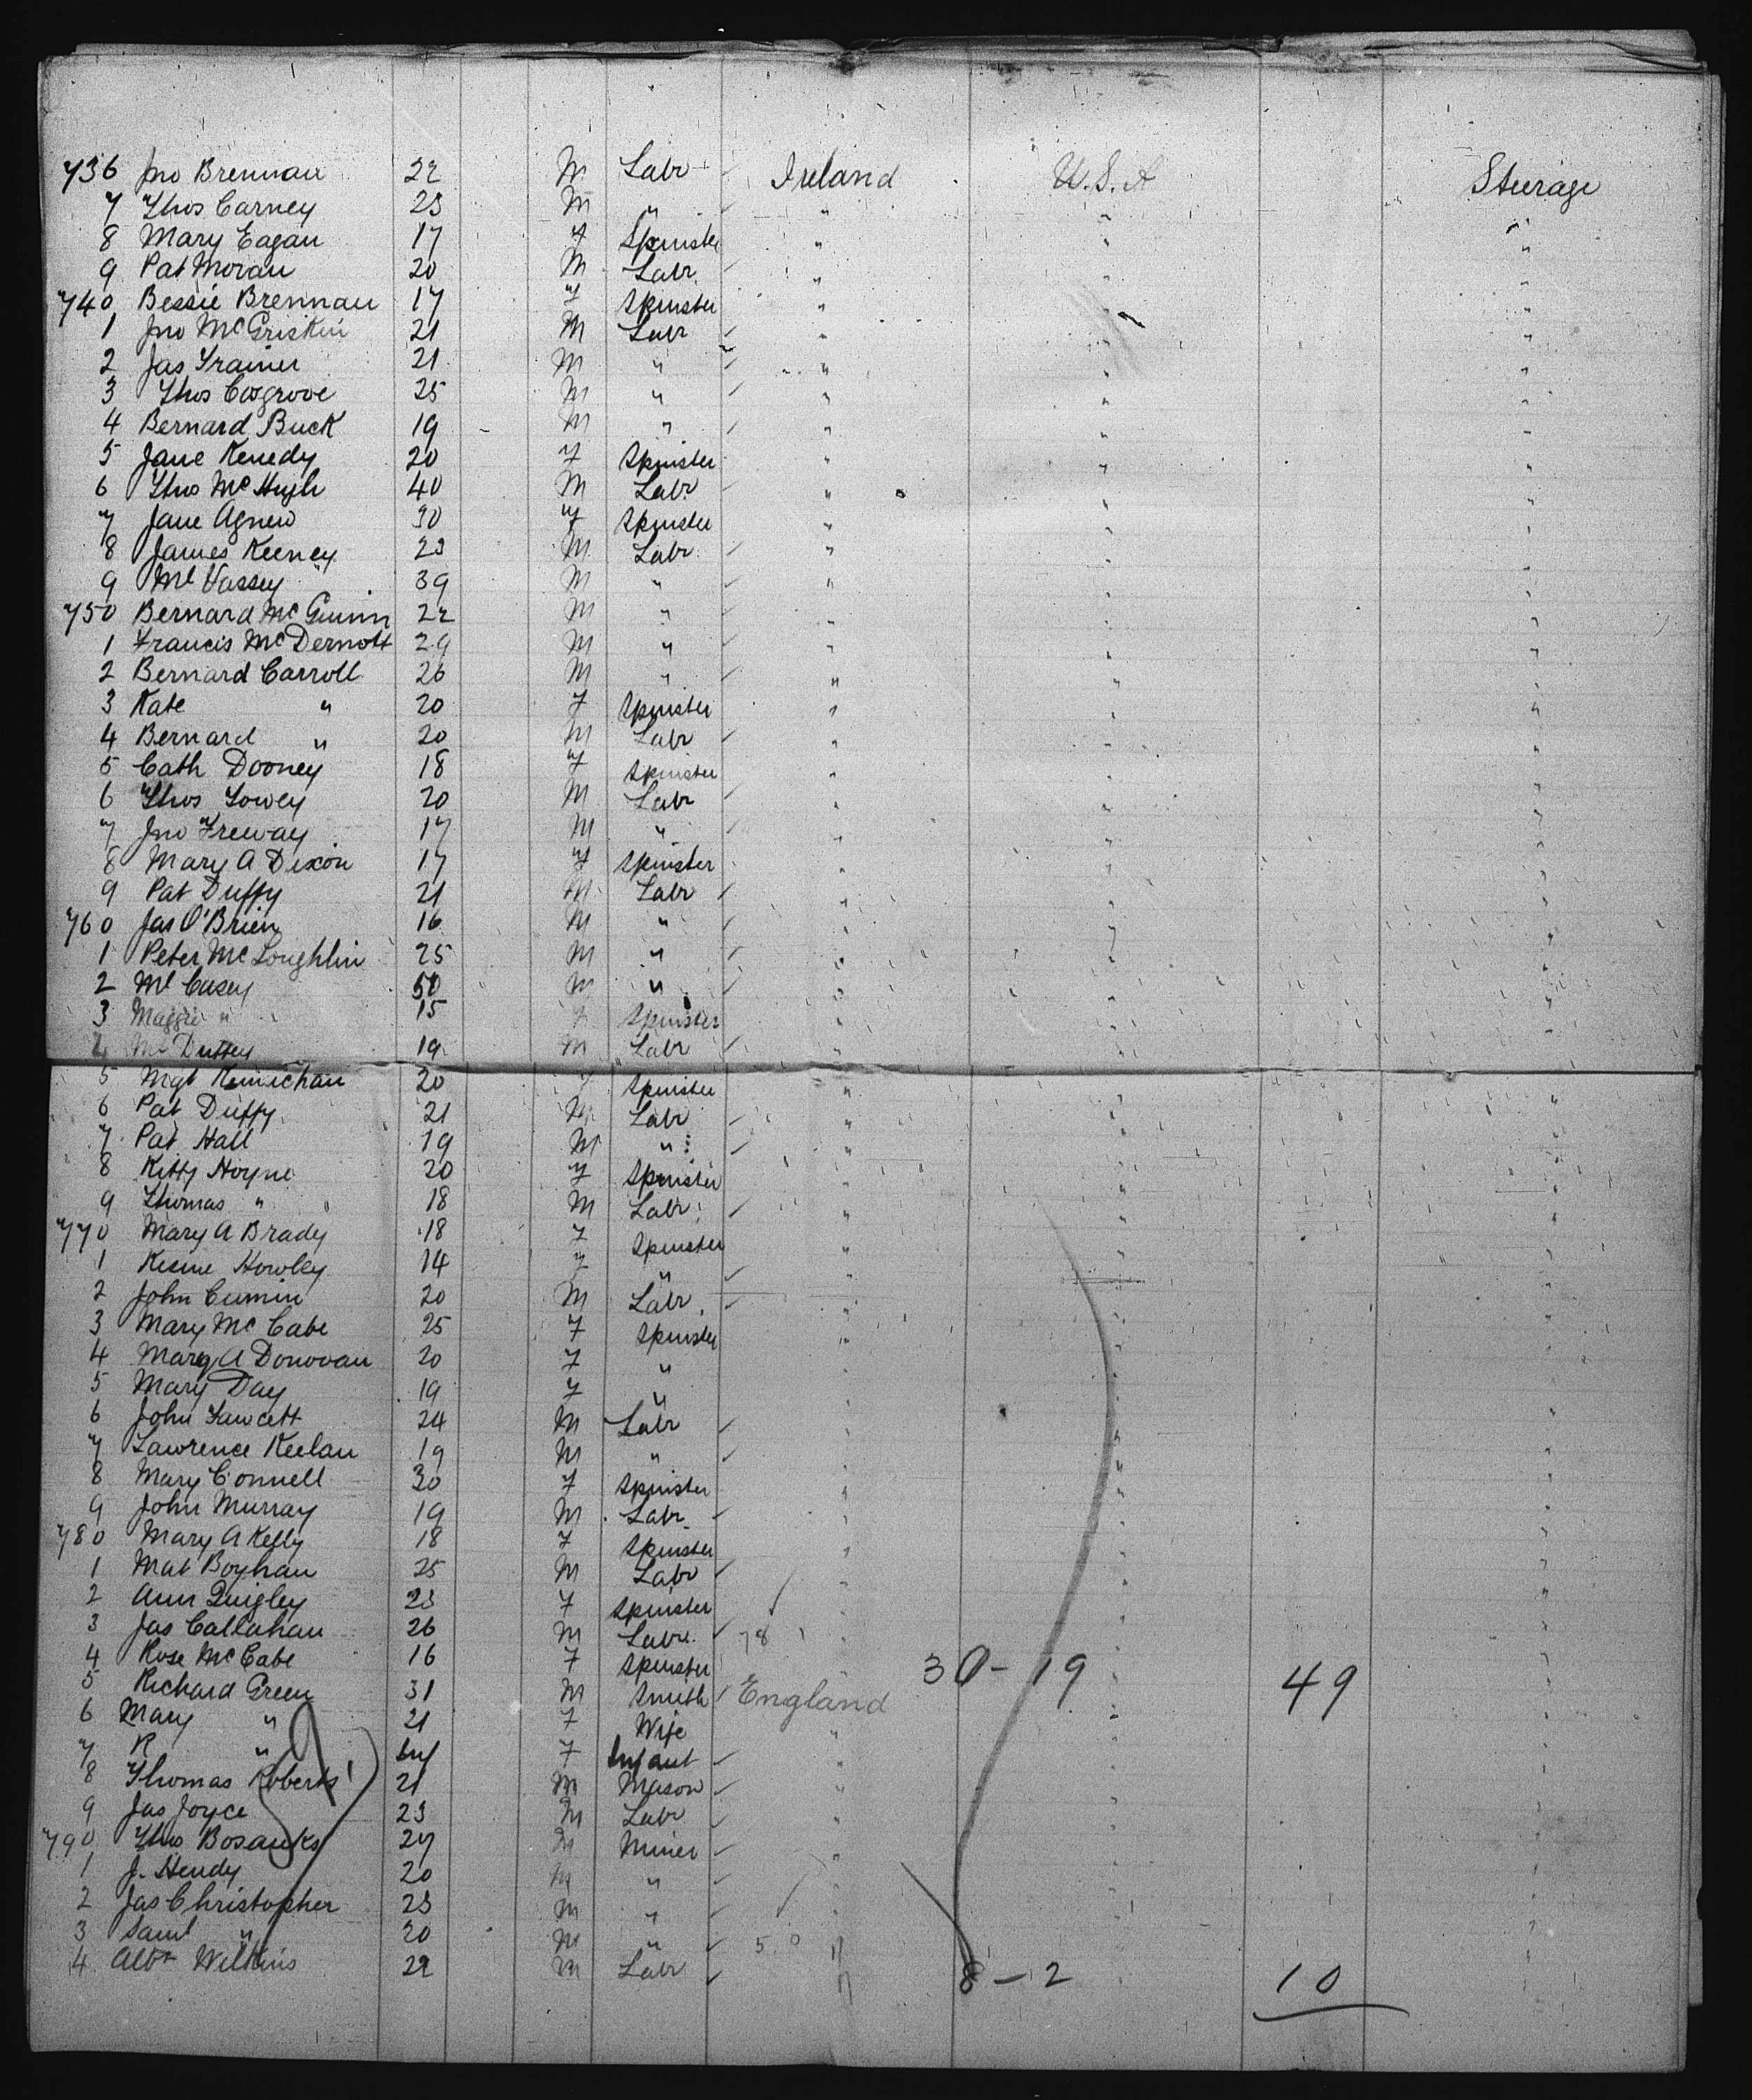 736 Jno Brennan 22 M Labr Ireland U.S.A Steerage
7 Thos Carney 23 M " " " "
8 Mary Eagan 17 F Spinster " " "
9 Pat Moran 20 M Labr " " "
740 Bessie Brennan 17 F Spinster " " "
1 Jno McGriskin 21 M Labr " " "
2 Jas Trainer 21 M " " " "
3 Thos Cosgrove 25 M " " " "
4 Bernard Buck 19 M " " " "
5 Jane Kenedy 20 F Spinster " " "
6 Thos McHugh 40 M Labr " " "
7 Jane Agnew 30 F Spinster " " "
8 James Keeney 23 M Labr " " "
9 Ml Vassey 39 M " " " "
750 Bernard McGuinn 22 M " " " "
1 Francis McDernott 29 M " " " "
2 Bernard Carroll 26 M " " " "
3 Kate " 20 F Spinster " " "
4 Bernard " 20 M Labr " " "
5 Cath Dooney 18 F Spinster " " "
6 Thos Towey 20 M Labr " " "
7 Jno Freeway 17 M " " " "
8 Mary A Dixon 17 F Spinster " " "
9 Pat Duffy 21 M Labr " " "
760 Jas O'Brien 16 M " " " "
1 Peter McLoughlin 25 M " " " "
2 Ml Casey 50 M " " " "
3 Maggie " 15 F Spinster " " "
4 Ml Duffey 19 M Labr " " "
5 Mgt 20 F Spinster " " "
6 Pat Duffy 21 M Labr " " "
7 Pat Hall 19 M " " " "
8 Kitty Hoyne 20 F Spinster " " "
9 Thomas " 18 M Labr " " "
770 Mary A Brady 18 F Spinster " " "
1 Howley 14 F " " " "
2 John Cumin 20 M Labr " " "
3 Mary McCabe 25 F Spinster " " "
4 Mary A Donovan 20 F " " " "
5 Mary Day 19 F " " " "
6 John Fawcett 24 M Labr " " "
7 Lawrence Keelan 19 M " " " "
8 Mary Connell 30 F Spinster " " "
9 John Murray 19 M Labr " " "
780 Mary A Kelly 18 F Spinster " " "
1 Mat Boyhan 25 M Labr " " "
2 Ann Quigley 23 F Spinster " " "
3 Jas Callahan 26 M Labr " " "
4 Rose McCabe 16 F Spinster " 30-19 49 "
5 Richard Green 31 M Smith England " "
6 Mary " 21 F Wife " " "
7 R " Inf F Infant " " "
8 Thomas Roberts 21 M Mason " " "
9 Jas Joyce 23 M Labr " " "
790 Thos Bosanks 27 M Miner " " "
1 J. Hendy 20 M " " " "
2 Jas Christopher 23 M " " " "
3 Saml " 20 M " " " "
4 Albt Wilkins 22 M Labr " 8-2 10